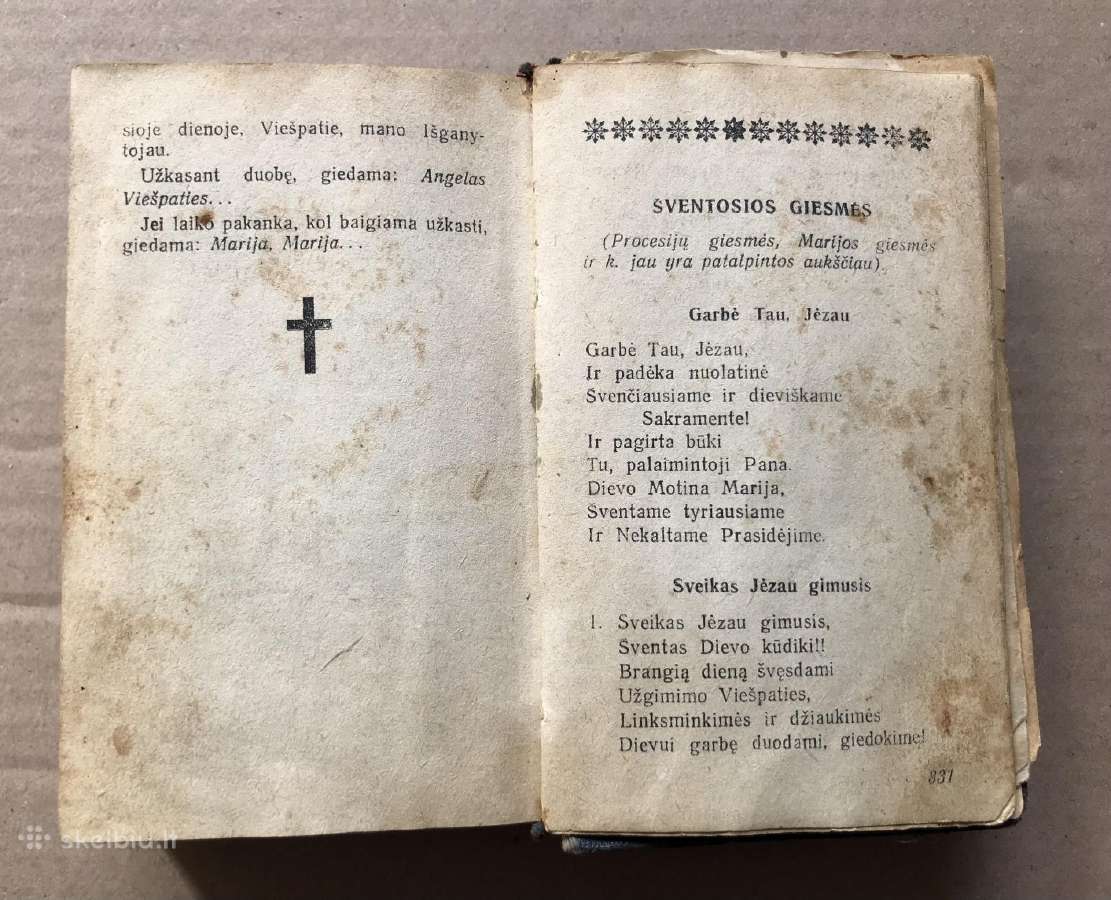 sioje dienoje, Viešpatie, mano Išgany-
tojau.
Užkasant duobę, giedama: Angelas
Viešpaties...
Jei laiko pakanka, kol baigiama užkasti,
giedama: Marija, Marija...
ŠVENTOSIOS GIESMĖS
(Procesijų giesmės, Marijos giesmės
ir k. jau yra patalpintos aukščiau).
Garbė Tau, Jėzau
Garbė Tau, Jėzau,
Ir padėka nuolatinė
Švenčiausiame ir dieviškame
Sakramente!
Ir pagirta būki
Tu, palaimintoji Pana.
Dievo Motina Marija,
Šventame tyriausiame
Ir Nekaltame Prasidėjime.
Sveikas Jėzau gimusis
1. Sveikas Jėzau gimusis,
Šventas Dievo kūdiki!!
Brangią dieną švęsdami
Užgimimo Viešpaties,
Linksminkimės ir džiaukimės
Dievui garbę duodami, giedokime!
831
skelbiu.lt